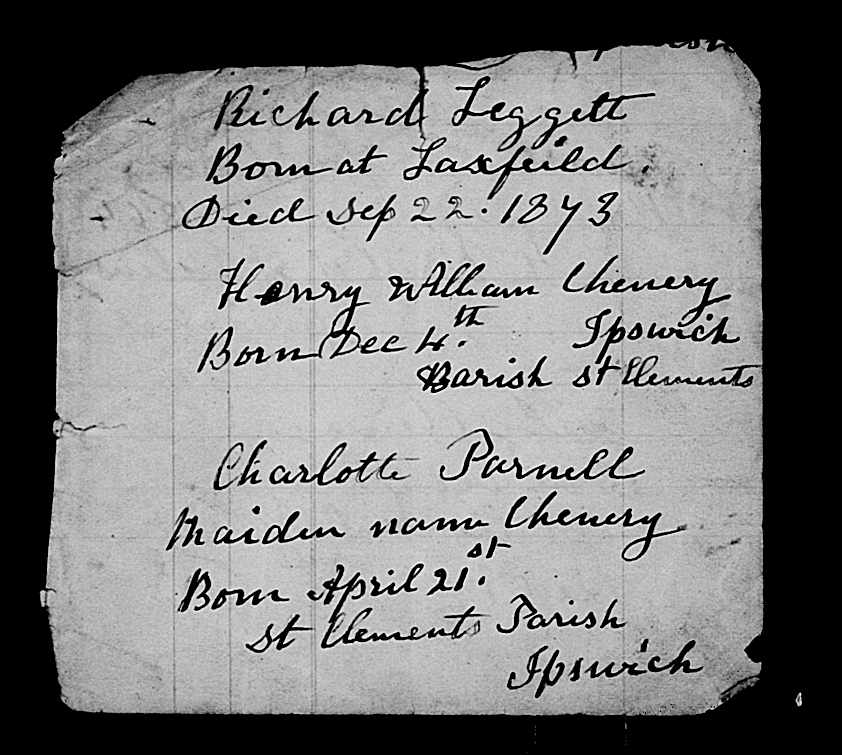 Richard Leggett
Born at Laxfeild.
Died Sep 22. 1873
Henry William Chenery
Born Dec 4.th Ipswich
Parish st Clements
Charlotte Parnell
Maiden name Chenery
Born April 21.st
st Clements Parish
Ipswich